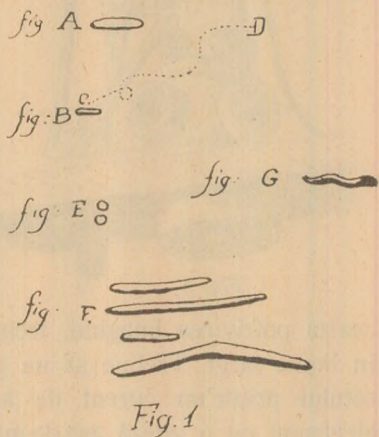 fig A
D
fig: B
C.
fig. G
fig. E
fig. F.
Fig. 1